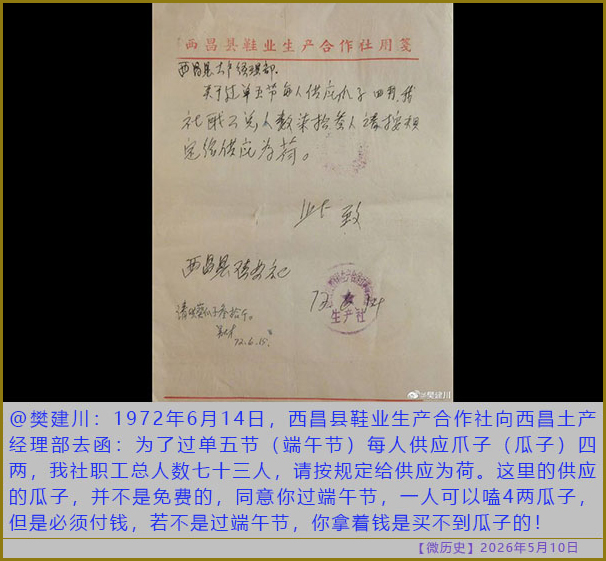 西昌县鞋业生产合作社用笺
西昌县土产经理部.
关于过单五节每人供应爪子四两,我
社职工总人数柒拾叁人请按规
定给供应为荷。
此致
西昌县鞋业社
72.6.14
生产社
72.6.15.
@樊建川
@樊建川：1972年6月14日，西昌县鞋业生产合作社向西昌土产
经理部去函：为了过单五节（端午节）每人供应爪子（瓜子）四
两，我社职工总人数七十三人，请按规定给供应为荷。这里的供应
的瓜子，并不是免费的，同意你过端午节，一人可以嗑4两瓜子，
但是必须付钱，若不是过端午节，你拿着钱是买不到瓜子的！
【微历史】2026年5月10日